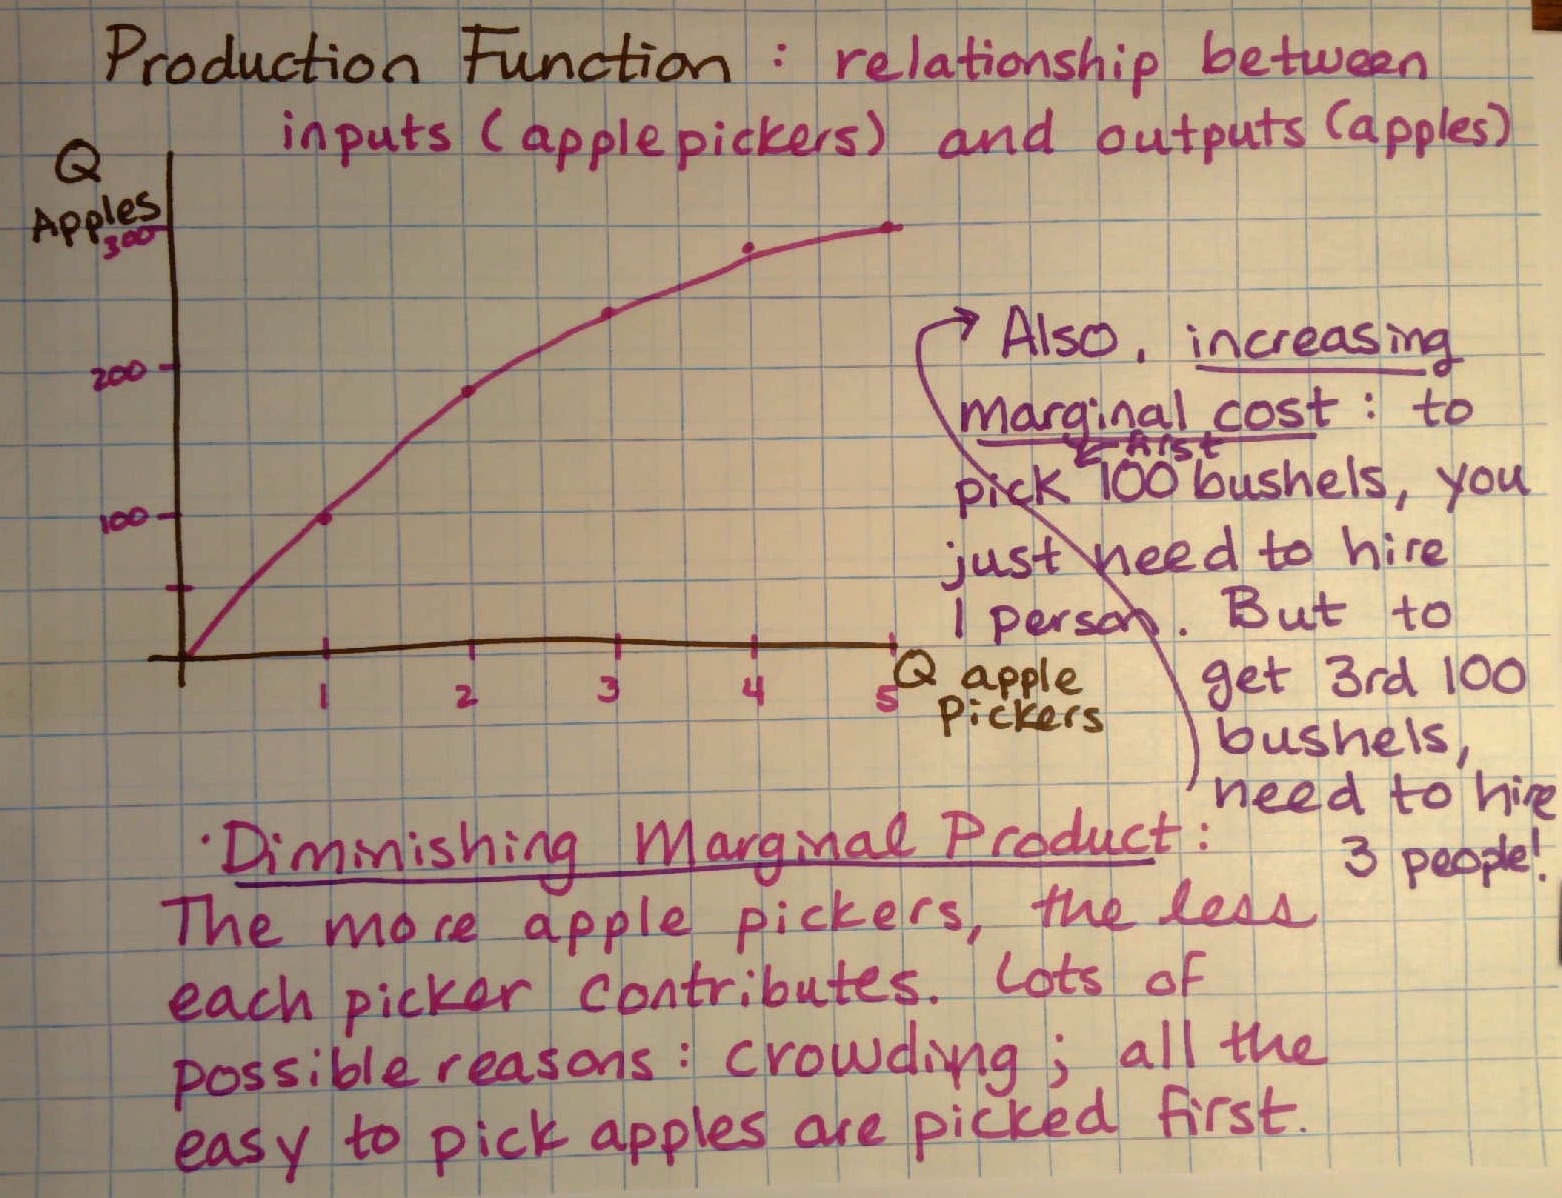 Production Function : relationship between
inputs (apple pickers) and outputs (apples)
Q
Apples
300
200
100
1 2 3 4 5
Q apple
Pickers
Also, increasing
marginal cost : to
first
pick 100 bushels, you
just need to hire
1 person. But to
get 3rd 100
bushels,
need to hire
3 people!
· Diminishing Marginal Product :
The more apple pickers, the less
each picker contributes. Lots of
possible reasons : crowding ; all the
easy to pick apples are picked first.